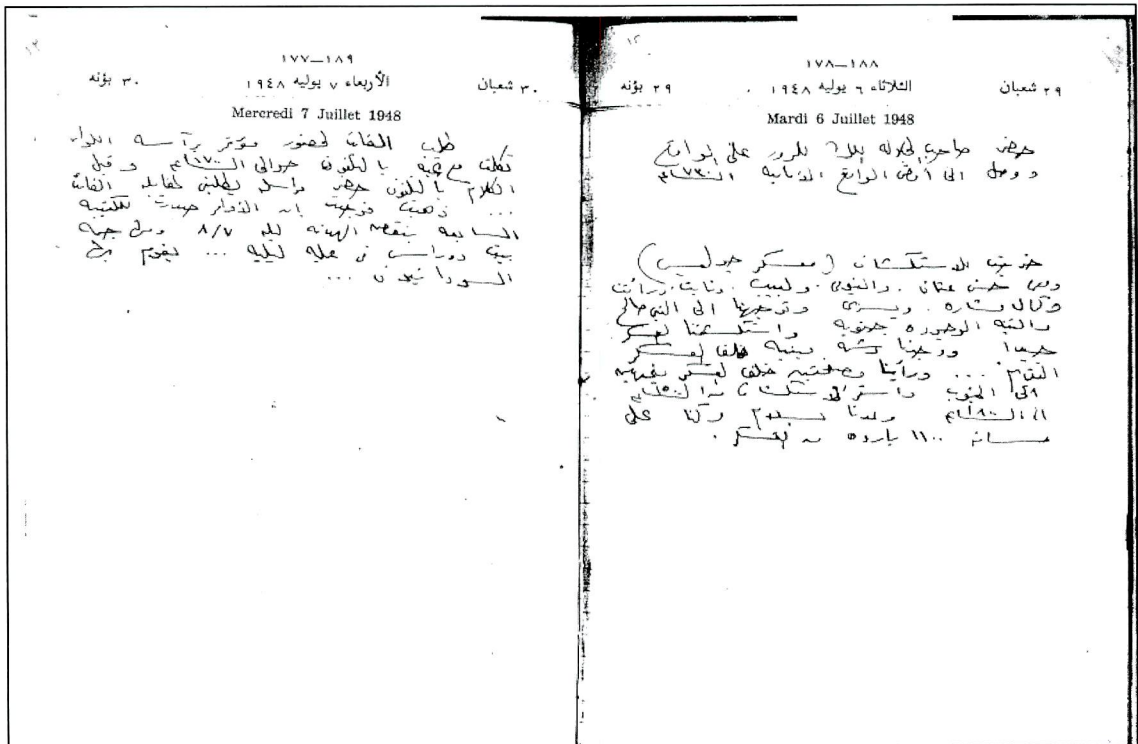 ١٢
١٨٨—١٧٨
٢٩ شعبان الثلاثاء ٦ يوليه ١٩٤٨ ٢٩ بؤنه
Mardi 6 Juillet 1948
حضر صاحب الجلالة الملك للمرور على المواقع
ووصل الى المواقع الأمامية الساعة
خرجت للاستكشاف (معسكر جوليس)
ومعى حسن عثمان . والتونى . ولبيب . ورأفت
وكمال بشاره . ويسرى وتوجهنا الى النبى صالح
والتبه الموجوده جنوبه واستكشفنا المعسكر
جيدا ووجدنا خلف المعسكر
... ورأينا مصفحتين خلف المعسكر
الى الجنوب واستمر الاستكشاف من الساعة
الى الساعة وعدنا بسلام وكنا على
مسافة ١١٠٠ ياردة من المعسكر .
١٣
١٨٩—١٧٧
٣٠ شعبان الأربعاء ٧ يوليه ١٩٤٨ ٣٠ بؤنه
Mercredi 7 Juillet 1948
طلب القائد لحضور مؤتمر برآسة اللواء
بالتليفون حوالى الساعة ١٧٠٠ وقبل
الكلام بالتليفون حضر مراسل يطلبنى لمقابلة القائد
... ذهبت فوجئت بأن الأوامر صدرت للكتيبة
السابعة الهدنة ليلة ٨/٧
بيت دوراس فى عملية ليلية ... ليقوم بها
السودانيون ...